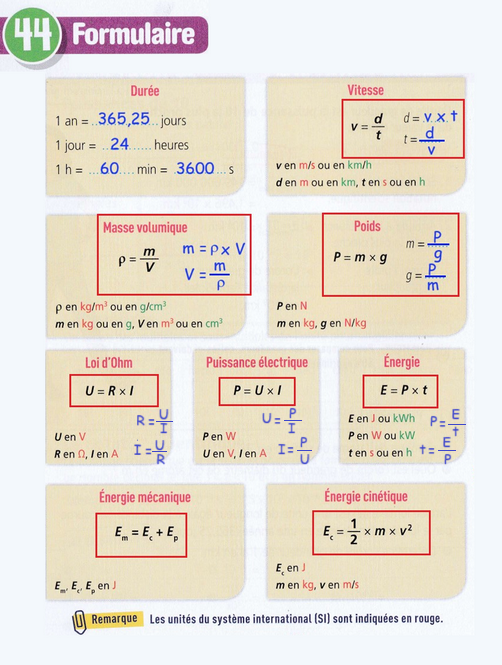 44 Formulaire
Durée
1 an = 365,25 jours
1 jour = 24 heures
1 h = 60 min = 3600 s
Vitesse
v = d/t
d = v x t
t = d/v
v en m/s ou en km/h
d en m ou en km, t en s ou en h
Masse volumique
ρ = m/V
m = ρ x V
V = m/ρ
ρ en kg/m³ ou en g/cm³
m en kg ou en g, V en m³ ou en cm³
Poids
P = m × g
m = P/g
g = P/m
P en N
m en kg, g en N/kg
Loi d'Ohm
U = R × I
R = U/I
U en V
R en Ω, I en A
I = U/R
Puissance électrique
P = U × I
U = P/I
P en W
U en V, I en A
I = P/U
Énergie
E = P × t
E en J ou kWh
P = E/t
P en W ou kW
t en s ou en h
t = E/P
Énergie mécanique
Em = Ec + Ep
Em, Ec, Ep en J
Énergie cinétique
Ec = 1/2 × m × v²
Ec en J
m en kg, v en m/s
Remarque Les unités du système international (SI) sont indiquées en rouge.